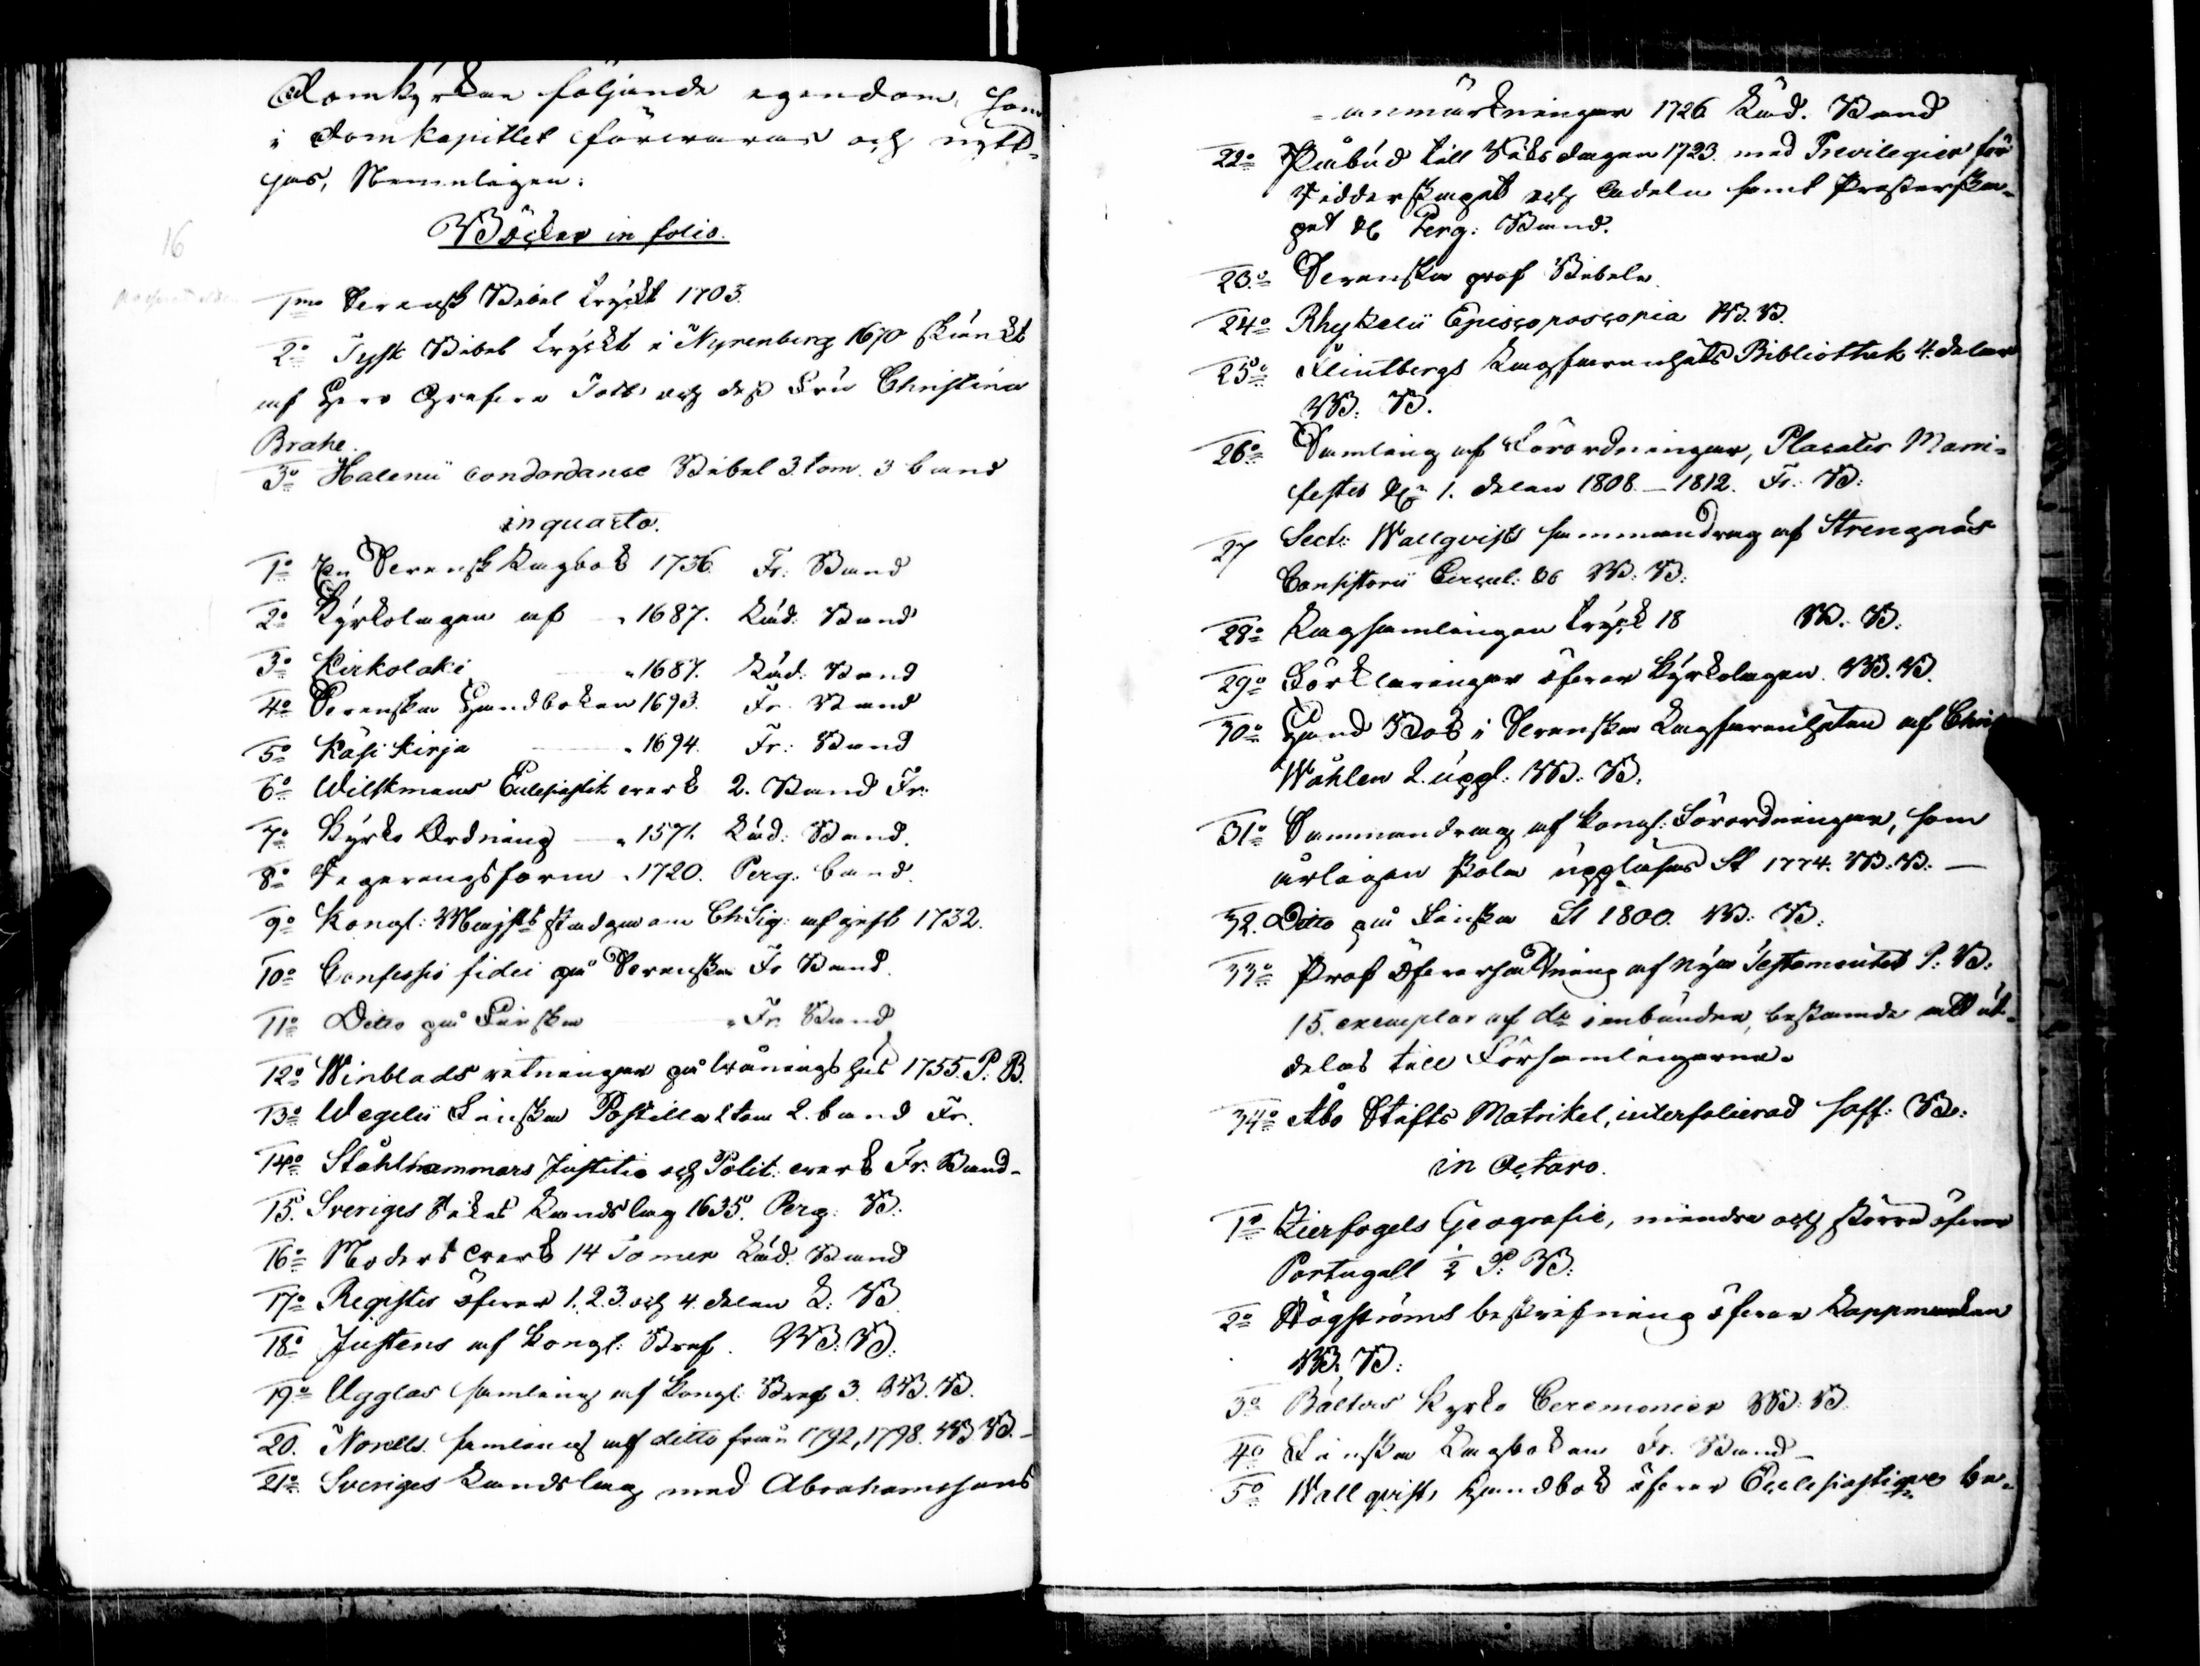 Domkyrkan följande egendom, som
i Domkapitlet förvaras och nytt-
jas, Nemnligen:
Böcker in folio.
16
1mo Svensk Bibel tryckt 1703.
2o Tysk Bibel tryckt i Nyrenberg 1670 skänkt
af Herr Grefve Tott och dess Fru Christina
Brahe.
3o Halenii condordance Bibel 3 tom. 3 band
in quarto.
1o En Svensk Lagbok 1736 Fr: Band
2o Kyrkolagen af 1687. Läd: Band
3o Kirkolaki 1687. Läd: Band
4o Svenska Handboken 1693. Fr. Band
5o Käsi kirja 1694. Fr: Band
6o Wilskmans Eclesiastik verk 2. Band Fr:
7o Kyrko Ordning 1571. Läd: Band.
8o Regeringsform 1720. Perg: band.
9o Kongl: Majsts stadga om ChSig: afgift 1732.
10o Confessio fidei på Svenska Fr Band.
11o Ditto på Finska Fr. Band
12o Winblads ritningar på Wåningshus 1755. P. B.
13o Wegelii Finska Postilla 2 tom 2. band Fr.
14o Stålhammars Justitie och Polit. verk Fr: Band-
15. Sveriges Rikes Landslag 1635. Perg: B:
16o Moders verk 14 Tomer Läd: Band
17o Register öfver 1. 2. 3. och 4. delen L: B
18o Justens af Kongl: Bref. W.B:
19o Ugglas samling af Kongl: Bref 3. W.B.
20. Norells samling af ditto från 1792, 1798. W.B.-
21o Sveriges Landslag med Abrahamssons
anmärkningar 1726 Läd. Band
22o Påbud till Riksdagen 1723. med Previlegier för
Ridderskapet och Adeln samt Presterska-
pet &c Perg: Band.
23o Svenska prof Bibeln
24o Rhyzelii Episcoposcopia W.B.
25o Flintbergs Lagfarenhets Bibliothek 4. delar
W: B.
26o Samling af Förordningar, Placater Mani-
fester &c 1. delen 1808.-1812. Fr: B:
27 Sect: Wallqvists sammandrag af Strengnäs
Consistorii Circul: W: B:
28o Lagsamlingen tryck 18 W. B:
29o Förklaringar öfver Kyrkolagen. W.B.
30o Hand Bok i Svenska Lagfarenheten af Chri
Wåhlen 2. uppl: W: B.
31o Sammandrag af Kongl: Förordningar, som
årligen skola uppläsas St 1774. W.B:-
32. Ditto på Finska St 1800. W: B:
33o Prof Öfversättning af Nya Testamentet P: B:
15. exemplar af do inbundna, bestämde att ut-
delas till Församlingarne.
34o Åbo Stifts Matrikel, interfolierad haff: B:
in Octavo.
1o Zierfogels Geografie, mindre och större öfver
Portugall 1/2 P: B:
2o Högströms beskrifning öfver Lappmarken
W: B:
3o Bälters Kyrko Ceremonier W: B
4o Finska Lagboken Fr. Band-
5o Wallqvists Handbok öfver Ecclesiastique be-